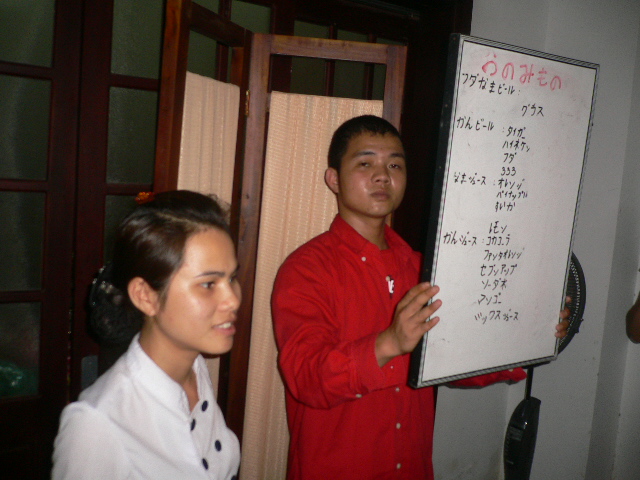 のみもの
フダなまビール：
グラス
かんビール：タイガ
ハイネケン
フダ
333
なまジュース：オレンジ
パイナップル
すいか
レモン
かんジュース：コカコラ
ファンタオレンジ
セブンアップ
ソーダ水
マンゴー
ミックスジュース